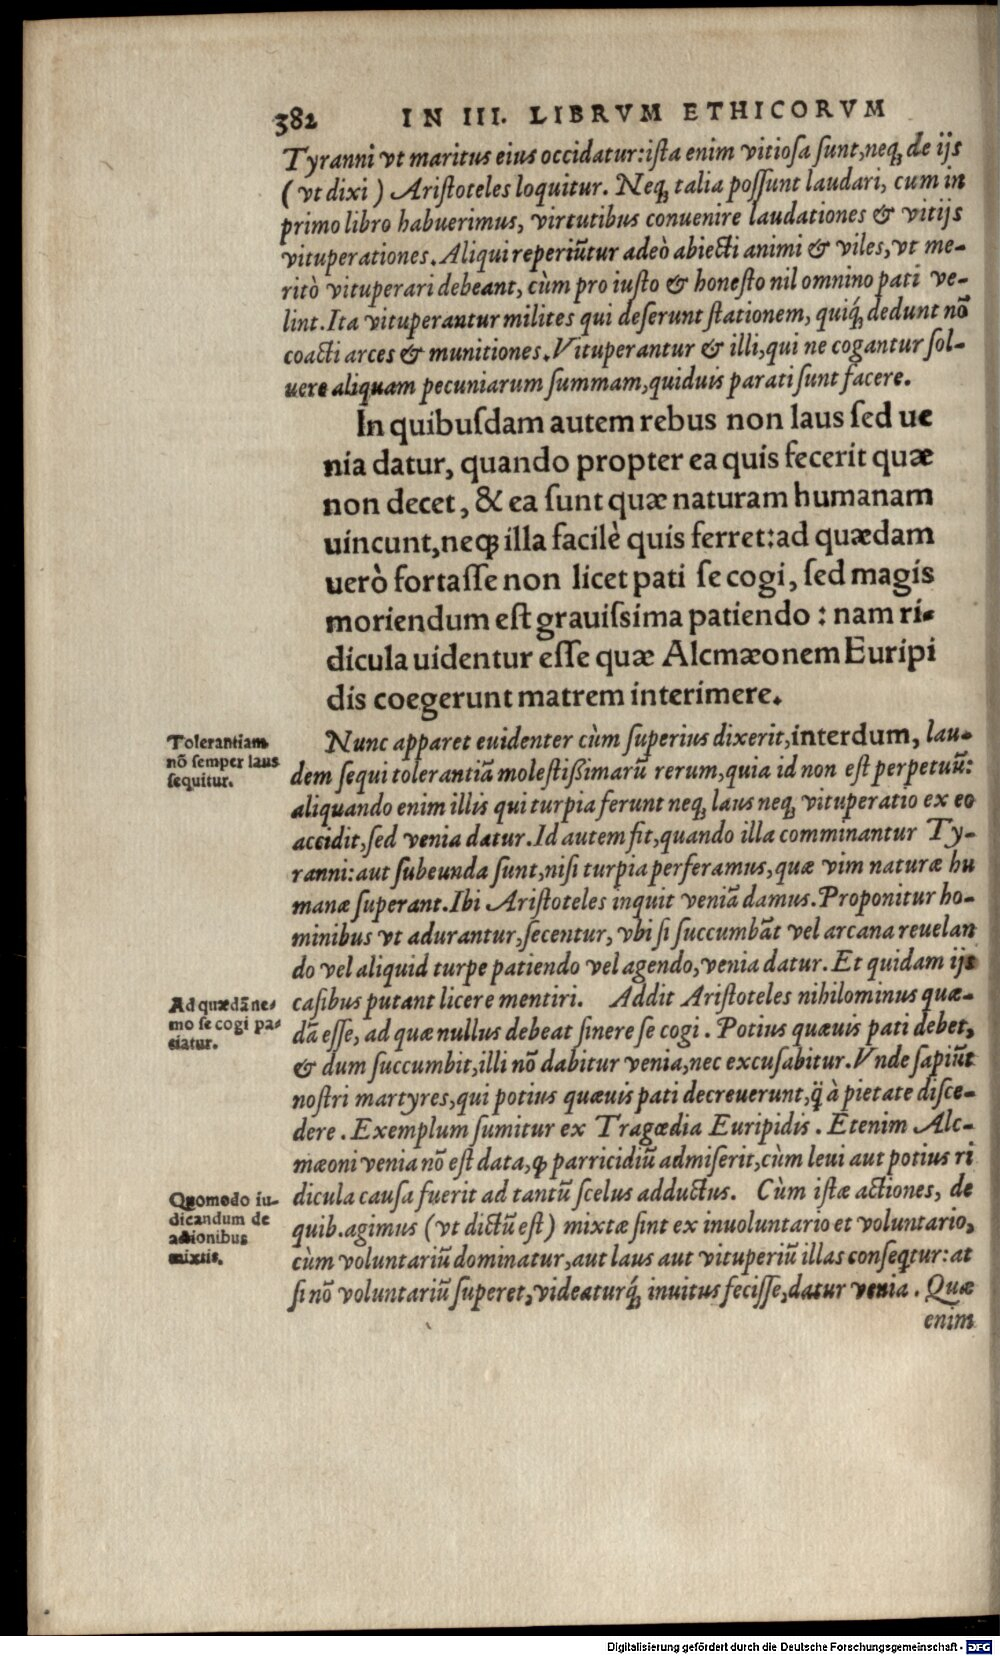 382 IN III. LIBRVM ETHICORVM
Tyranni vt maritus eius occidatur: ista enim vitiosa sunt, neq́ de ijs
(vt dixi) Aristoteles loquitur. Neq́ talia possunt laudari, cum in
primo libro habuerimus, virtutibus conuenire laudationes & vitijs
vituperationes. Aliqui reperiũtur adeò abiecti animi & viles, vt me-
ritò vituperari debeant, cùm pro iusto & honesto nil omnino pati ve-
lint. Ita vituperantur milites qui deserunt stationem, quiq́ dedunt nõ
coacti arces & munitiones. Vituperantur & illi, qui ne cogantur sol-
uere aliquam pecuniarum summam, quiduis parati sunt facere.
In quibusdam autem rebus non laus sed ue
nia datur, quando propter ea quis fecerit quæ
non decet, & ea sunt quæ naturam humanam
uincunt, neq; illa facilè quis ferret: ad quædam
uerò fortasse non licet pati se cogi, sed magis
moriendum est grauissima patiendo: nam ri-
dicula uidentur esse quæ Alcmæonem Euripi
dis coegerunt matrem interimere.
Tolerantiam
nõ semper laus
sequitur.
Nunc apparet euidenter cùm superius dixerit, interdum, lau-
dem sequi tolerantiã molestißimarũ rerum, quia id non est perpetuũ:
aliquando enim illis qui turpia ferunt neq́ laus neq́ vituperatio ex eo
accidit, sed venia datur. Id autem fit, quando illa comminantur Ty-
ranni: aut subeunda sunt, nisi turpia perferamus, quæ vim naturæ hu
manæ superant. Ibi Aristoteles inquit veniã damus. Proponitur ho-
minibus vt adurantur, secentur, vbi si succumbãt vel arcana reuelan
do vel aliquid turpe patiendo vel agendo, venia datur. Et quidam ijs
Ad quædã ne-
mo se cogi pa-
tiatur.
casibus putant licere mentiri. Addit Aristoteles nihilominus quæ-
dã esse, ad quæ nullus debeat sinere se cogi. Potius quæuis pati debet,
& dum succumbit, illi nõ dabitur venia, nec excusabitur. Vnde sapiũt
nostri martyres, qui potius quæuis pati decreuerunt, q̃ à pietate disce-
dere. Exemplum sumitur ex Tragœdia Euripidis. Etenim Alc-
mæoni venia nõ est data, q; parricidiũ admiserit, cùm leui aut potius ri
Quomodo iu-
dicandum de
actionibus
mixtis.
dicula causa fuerit ad tantũ scelus adductus. Cùm istæ actiones, de
quib. agimus (vt dictũ est) mixtæ sint ex inuoluntario et voluntario,
cùm voluntariũ dominatur, aut laus aut vituperiũ illas conseqtur: at
si nõ voluntariũ superet, videaturq́ inuitus fecisse, datur venia. Quæ
enim
Digitalisierung gefördert durch die Deutsche Forschungsgemeinschaft - DFG